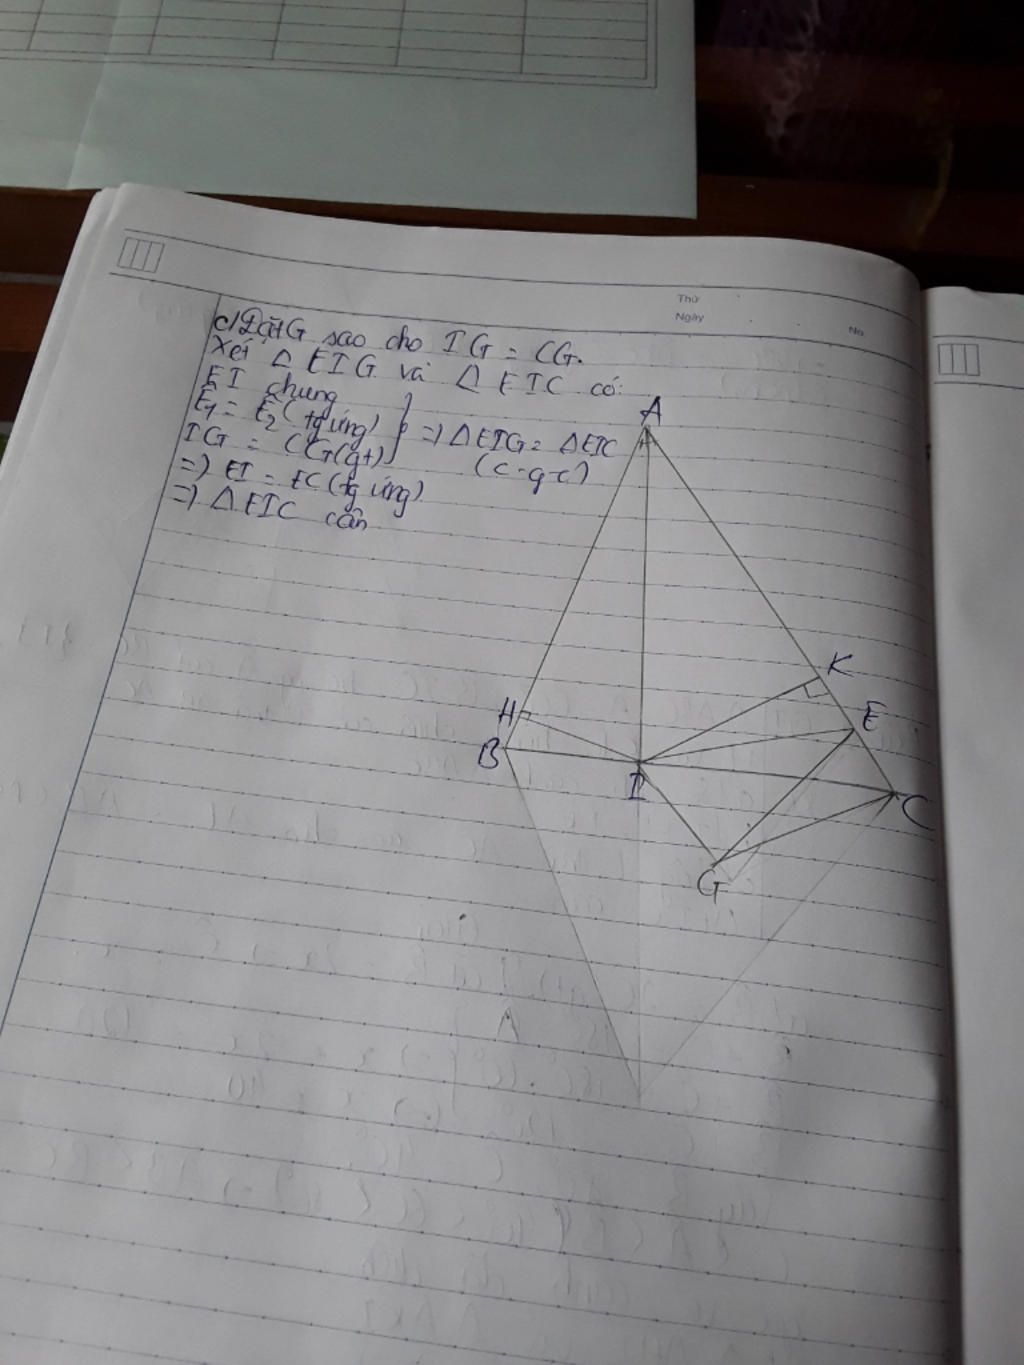 Thứ
Ngày
No
c/ Đặt G sao cho IG = CG.
Xét △ EIG và △ EIC có:
EI chung
E1 = E2 (tg ứng)
IG = CG (gt)
=> △EIG = △EIC
(c-g-c)
=> EI = EC (tg ứng)
=> △EIC cân
A
H
B
I
K
E
C
G
A